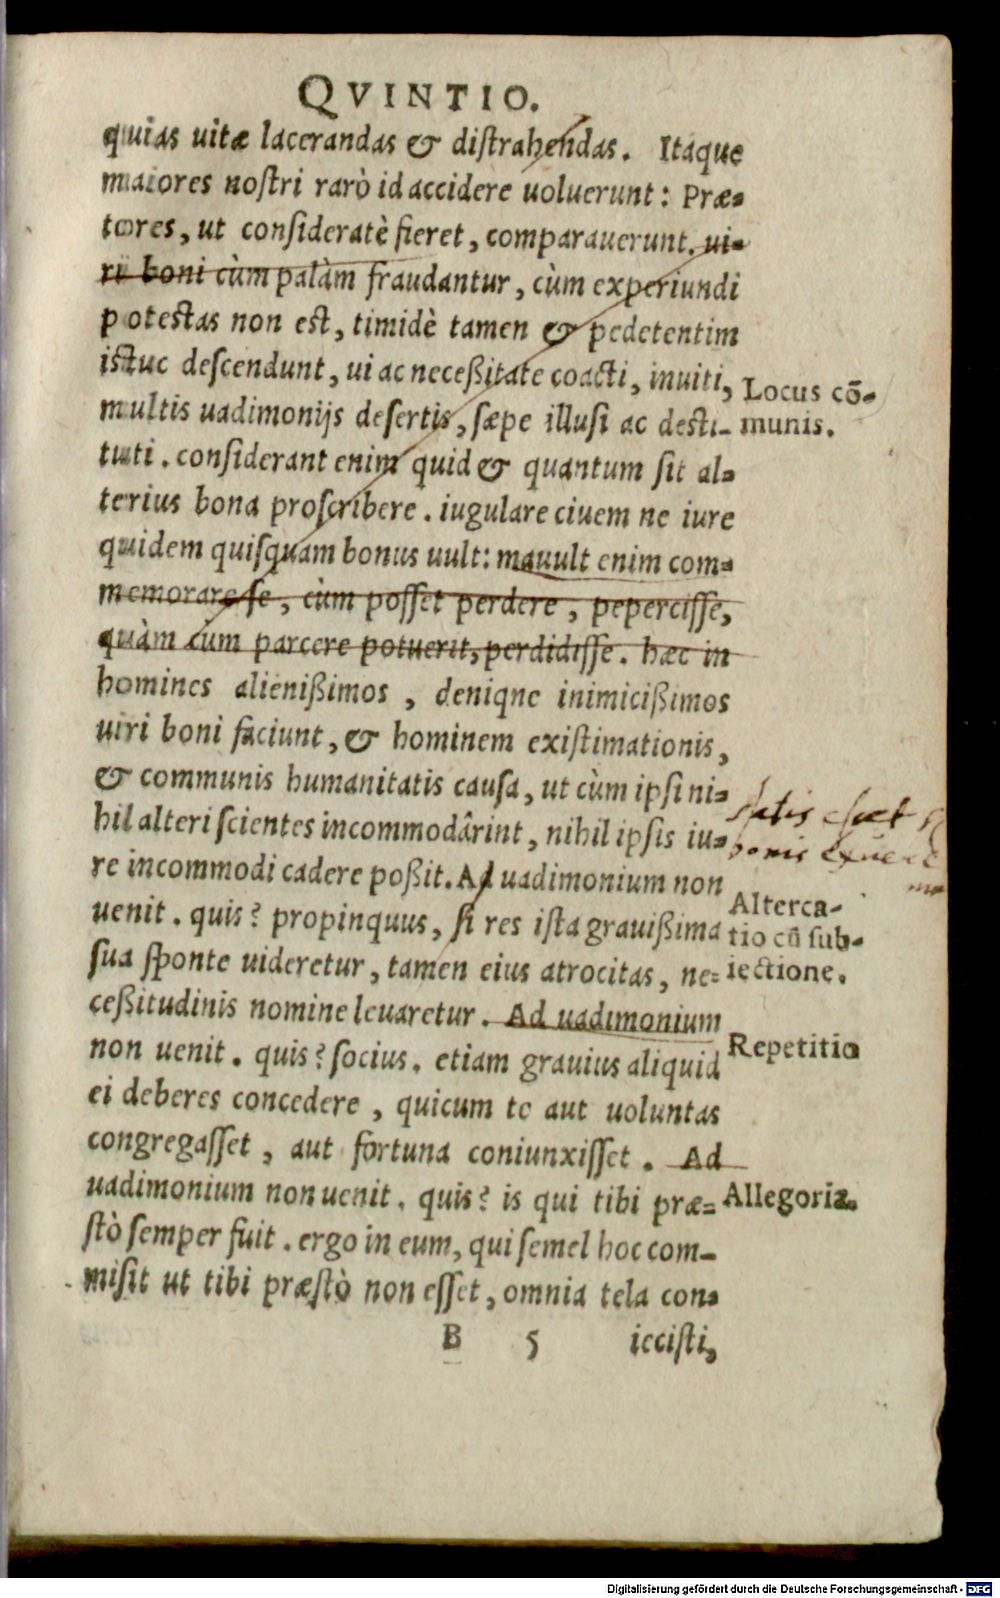 QVINTIO.
quias uitæ lacerandas & distrahendas. Itaque
maiores nostri rarò id accidere uoluerunt: Præ-
tores, ut consideratè fieret, comparauerunt. ui-
ri boni cùm palàm fraudantur, cùm experiundi
potestas non est, timidè tamen & pedetentim
istuc descendunt, ui ac neceßitate coacti, inuiti,
Locus cō-
multis uadimonijs desertis, sæpe illusi ac desti-
munis.
tuti. considerant enim quid & quantum sit al-
terius bona proscribere. iugulare ciuem ne iure
quidem quisquam bonus uult: mauult enim com-
memorare se, cùm posset perdere, pepercisse,
quàm cùm parcere potuerit, perdidisse. hæc in
homines alienißimos, deniqne inimicißimos
uiri boni faciunt, & hominem existimationis,
& communis humanitatis causa, ut cùm ipsi ni-
hil alteri scientes incommodârint, nihil ipsis iu-
re incommodi cadere poßit. Ad uadimonium non
satis esset
bonis
uenit. quis? propinquus, si res ista grauißima
Alterca-
tio cū sub-
sua sponte uideretur, tamen eius atrocitas, ne-
iectione.
ceßitudinis nomine leuaretur. Ad uadimonium
non uenit. quis? socius. etiam grauius aliquid
Repetitio
ei deberes concedere, quicum te aut uoluntas
congregasset, aut fortuna coniunxisset. Ad
uadimonium non uenit. quis? is qui tibi præ-
Allegoria.
stò semper fuit. ergo in eum, qui semel hoc com-
misit ut tibi præstò non esset, omnia tela con-
B 5 iecisti,
Digitalisierung gefördert durch die Deutsche Forschungsgemeinschaft - DFG